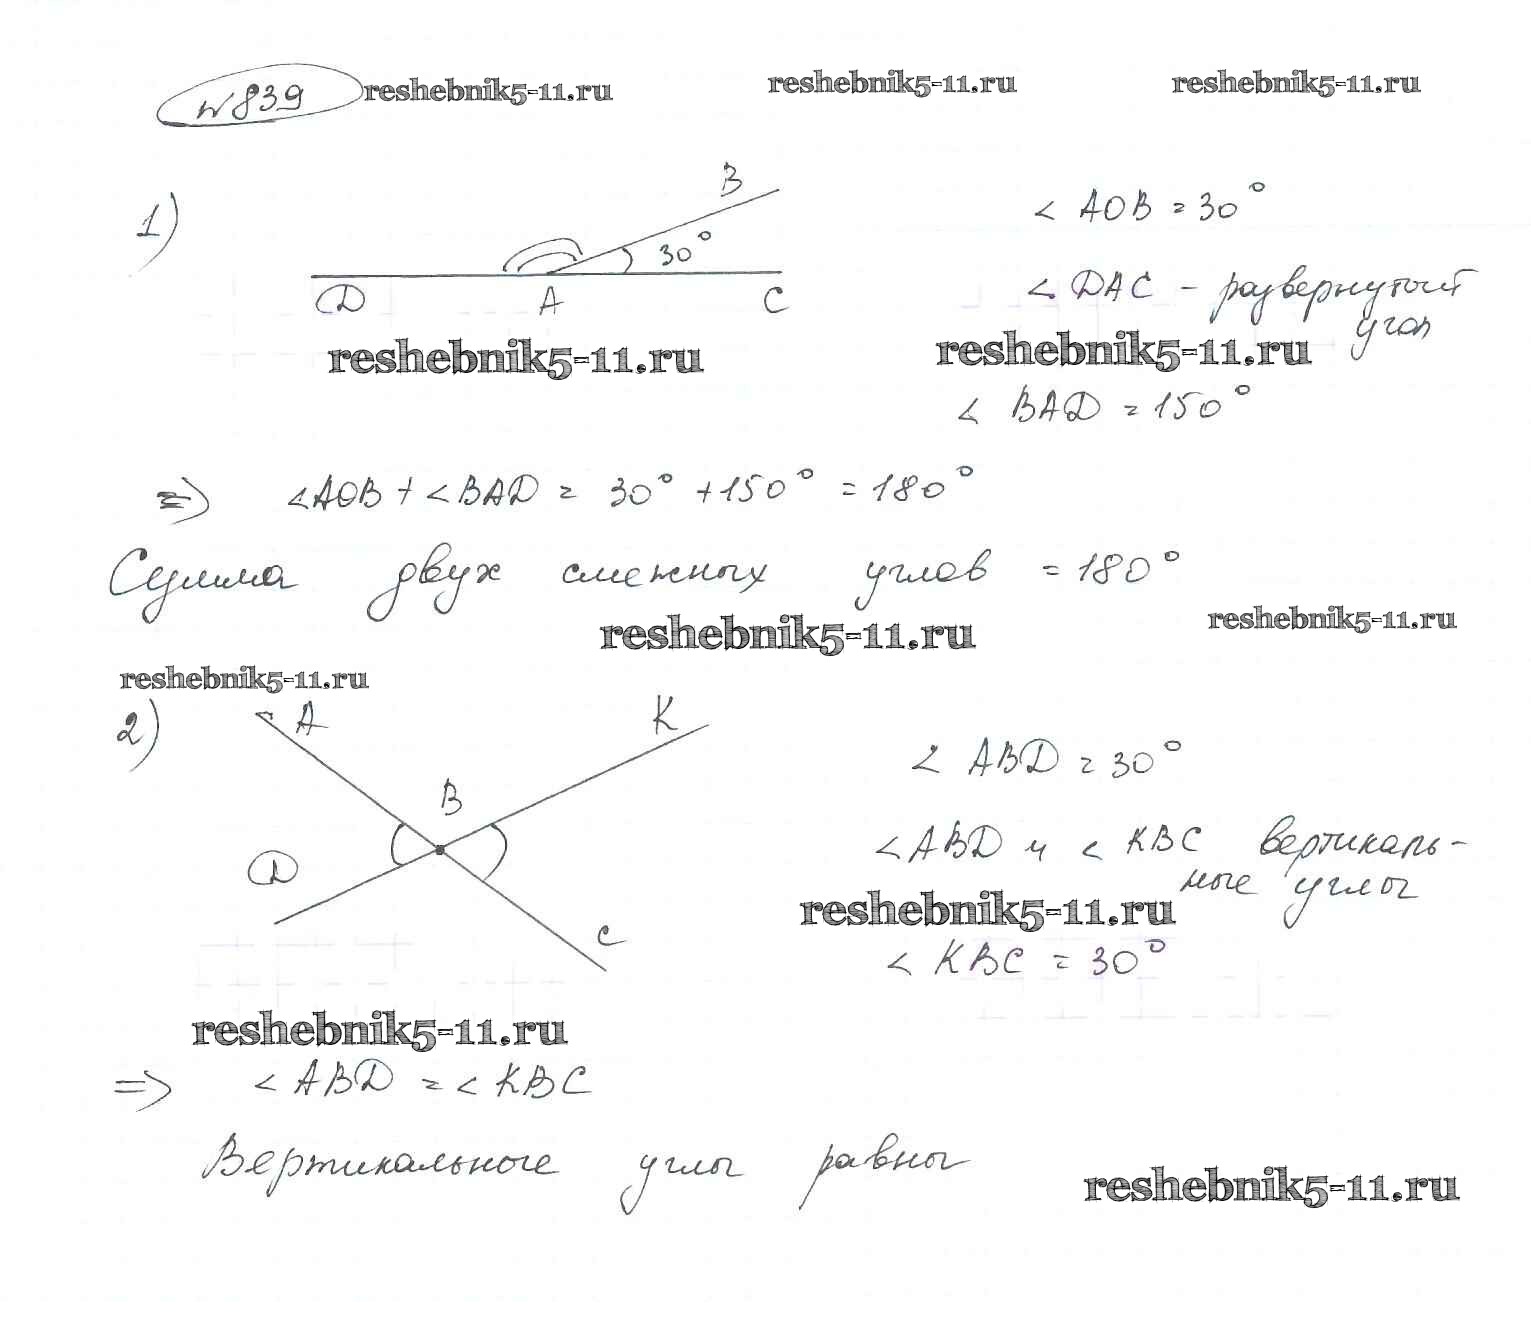 №839 reshebnik5-11.ru reshebnik5-11.ru reshebnik5-11.ru
1)
B
30°
D A C
∠ AOB = 30°
∠ DAC - развернутый
угол
reshebnik5-11.ru reshebnik5-11.ru
∠ BAD = 150°
=> ∠AOB + ∠BAD = 30° + 150° = 180°
Сумма двух смежных углов = 180°
reshebnik5-11.ru reshebnik5-11.ru
reshebnik5-11.ru
2)
A K
B
D
C
∠ ABD = 30°
∠ABD и ∠ KBC вертикаль-
ные углы
reshebnik5-11.ru
∠ KBC = 30°
reshebnik5-11.ru
=> ∠ ABD = ∠ KBC
Вертикальные углы равны
reshebnik5-11.ru